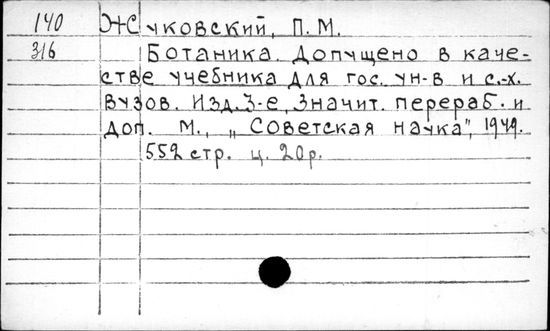 140 Жуковский, П.М.
316 Ботаника. Допущено в каче-
стве учебника для гос. ун-в и с.-х.
вузов. Изд. 3-е, значит. перераб. и
доп. М., „Советская наука", 1949.
552 стр. ц. 20 р.